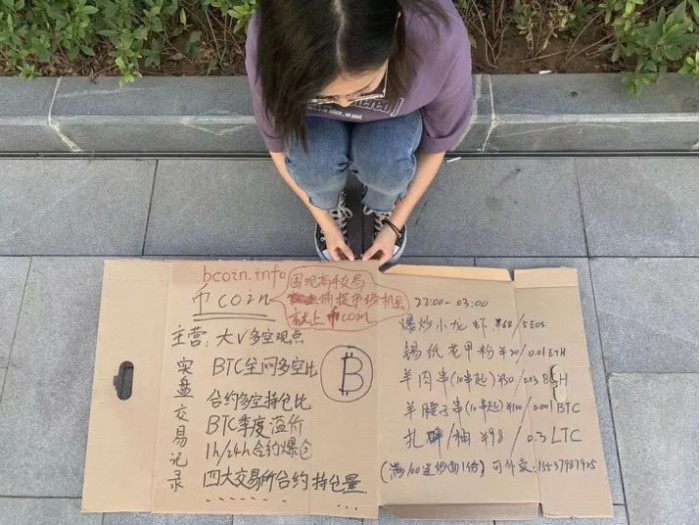 bcoin.info
币coin
围观高手交易
捕捉市场机会
就上币coin
主营：大V多空观点
实盘交易记录
BTC全网多空比
合约多空持仓比
BTC季度溢价
1h/24h合约爆仓
四大交易所合约持仓量
22:00-03:00
爆炒小龙虾 ¥68/5EOS
锡纸花甲粉 ¥20/0.01ETH
羊肉串(10串起)¥50/
羊腰子串(10串起)¥100/0.001BTC
扎啤/桶 ¥98/0.3LTC
可外卖: